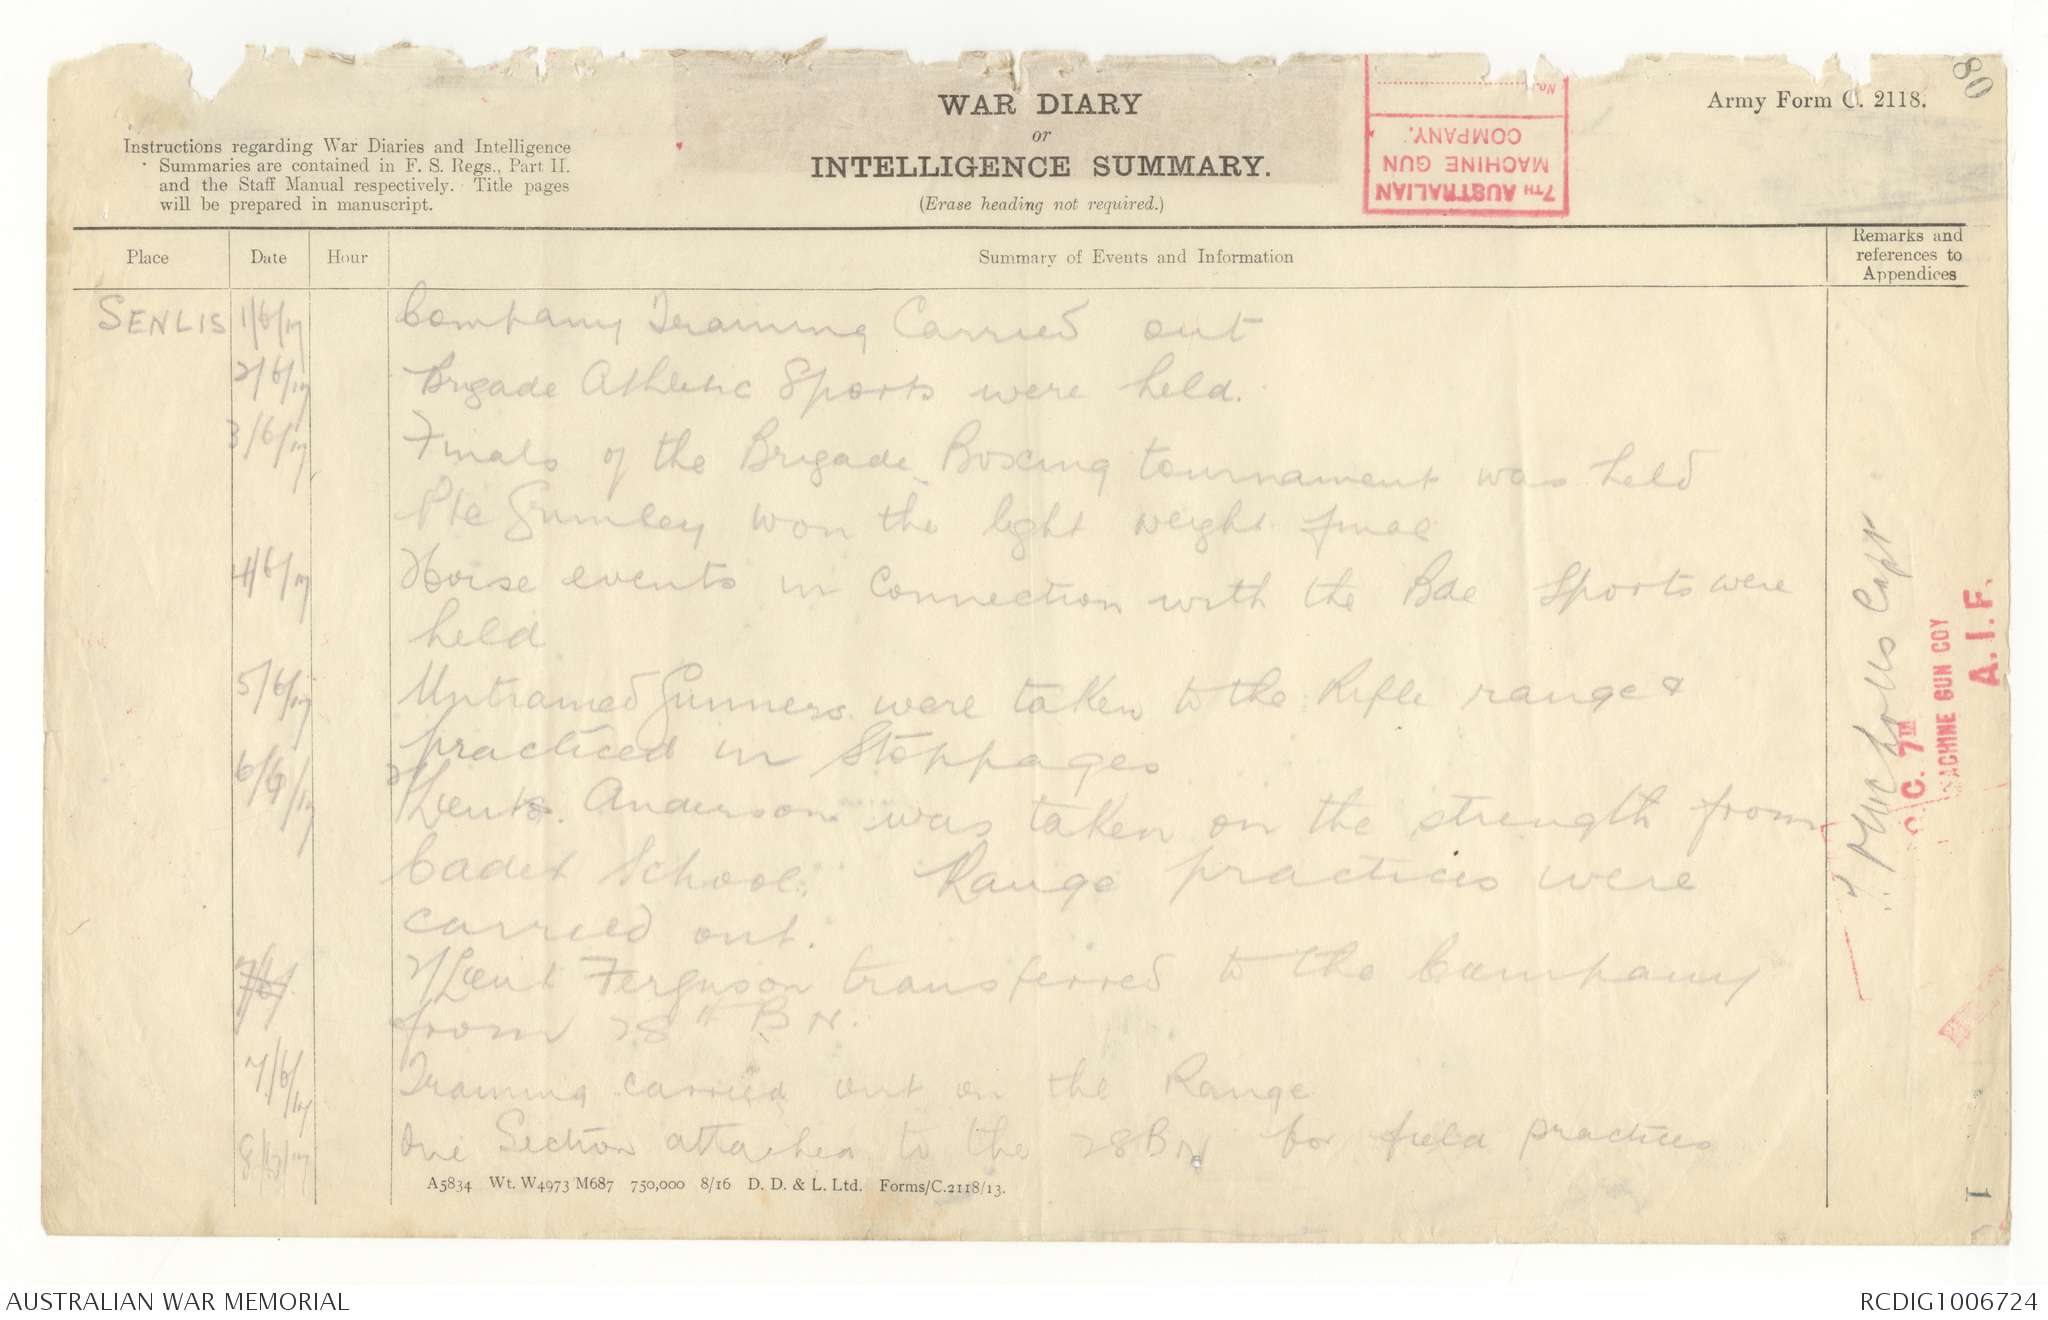 80
Army Form C. 2118.
WAR DIARY
or
INTELLIGENCE SUMMARY.
(Erase heading not required.)
Instructions regarding War Diaries and Intelligence
Summaries are contained in F. S. Regs., Part II.
and the Staff Manual respectively. Title pages
will be prepared in manuscript.
No.
7TH AUSTRALIAN
MACHINE GUN
COMPANY.
Place Date Hour Summary of Events and Information Remarks and references to Appendices
SENLIS 1/6/17 Company Training Carried out
2/6/17 Brigade Athletic Sports were held.
3/6/17 Finals of the Brigade Boxing tournament was held
Pte Gumley won the light weight final
4/6/17 Horse events in connection with the Bde Sports were
held
5/6/17 Untrained Gunners were taken to the Rifle range &
practiced in Stoppages
6/6/17 2/Lieut. Anderson was taken on the strength from
Cadet School. Range practices were
carried out.
2/Lieut Ferguson transferred to the Company
from 28th BN.
7/6/17 Training carried out on the Range
8/6/17 One Section attached to the 28BN for field practices
Capt
O.C. 7TH
MACHINE GUN COY
A.I.F.
A5834 Wt. W4973 M687 750,000 8/16 D. D. & L. Ltd. Forms/C.2118/13.
1
AUSTRALIAN WAR MEMORIAL
RCDIG1006724